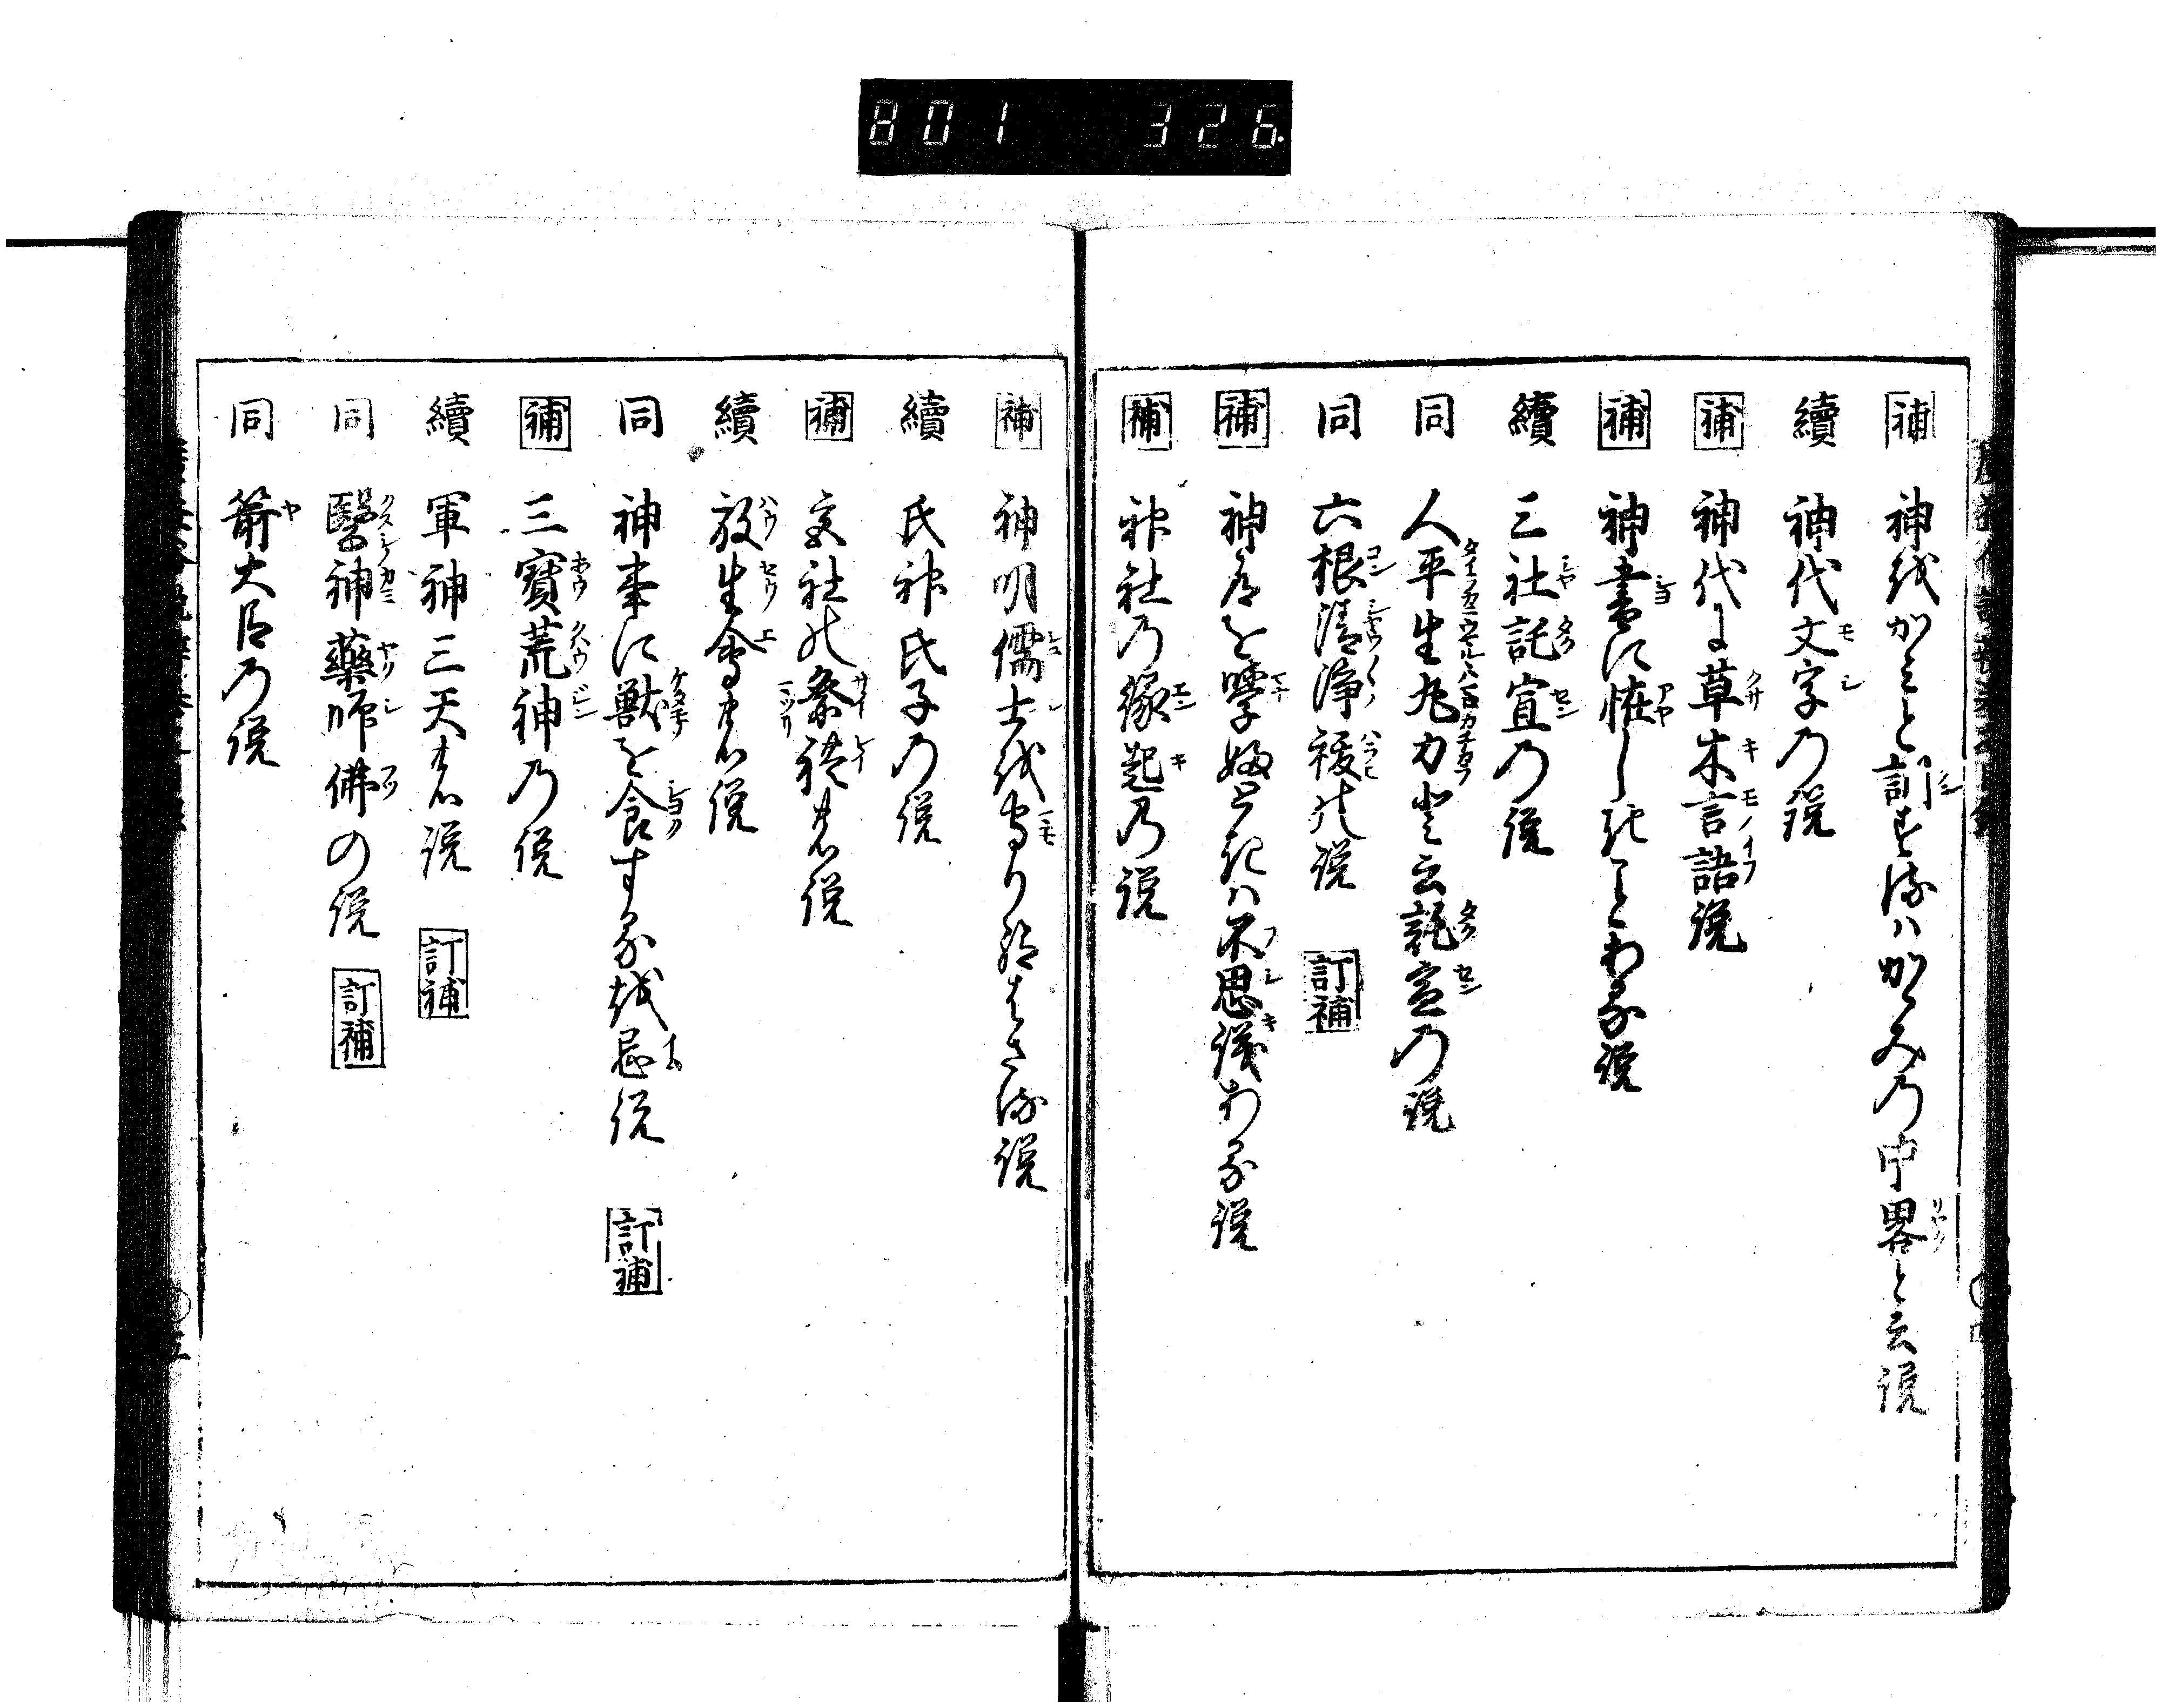 801 326
補 神をかミと訓するハかゞみの中畧と云説
續 神代文字の説
補 神代に草木言語説
補 神書に怪しきことある説
續 三社託宣の説
同 人平生九力と云託宣の説
同 六根清浄祓の説 訂補
補 神道を學ぶときハ不思議ある説
補 神社の縁起の説
補 神明儒士を守り給はさる説
續 氏神氏子の説
補 社の祭礼の説
續 放生會の説
同 神事に獣を食する を忌説 訂補
補 三寶荒神の説
續 軍神三天の説 訂補
同 醫神藥師佛の説 訂補
同 箭大臣の説